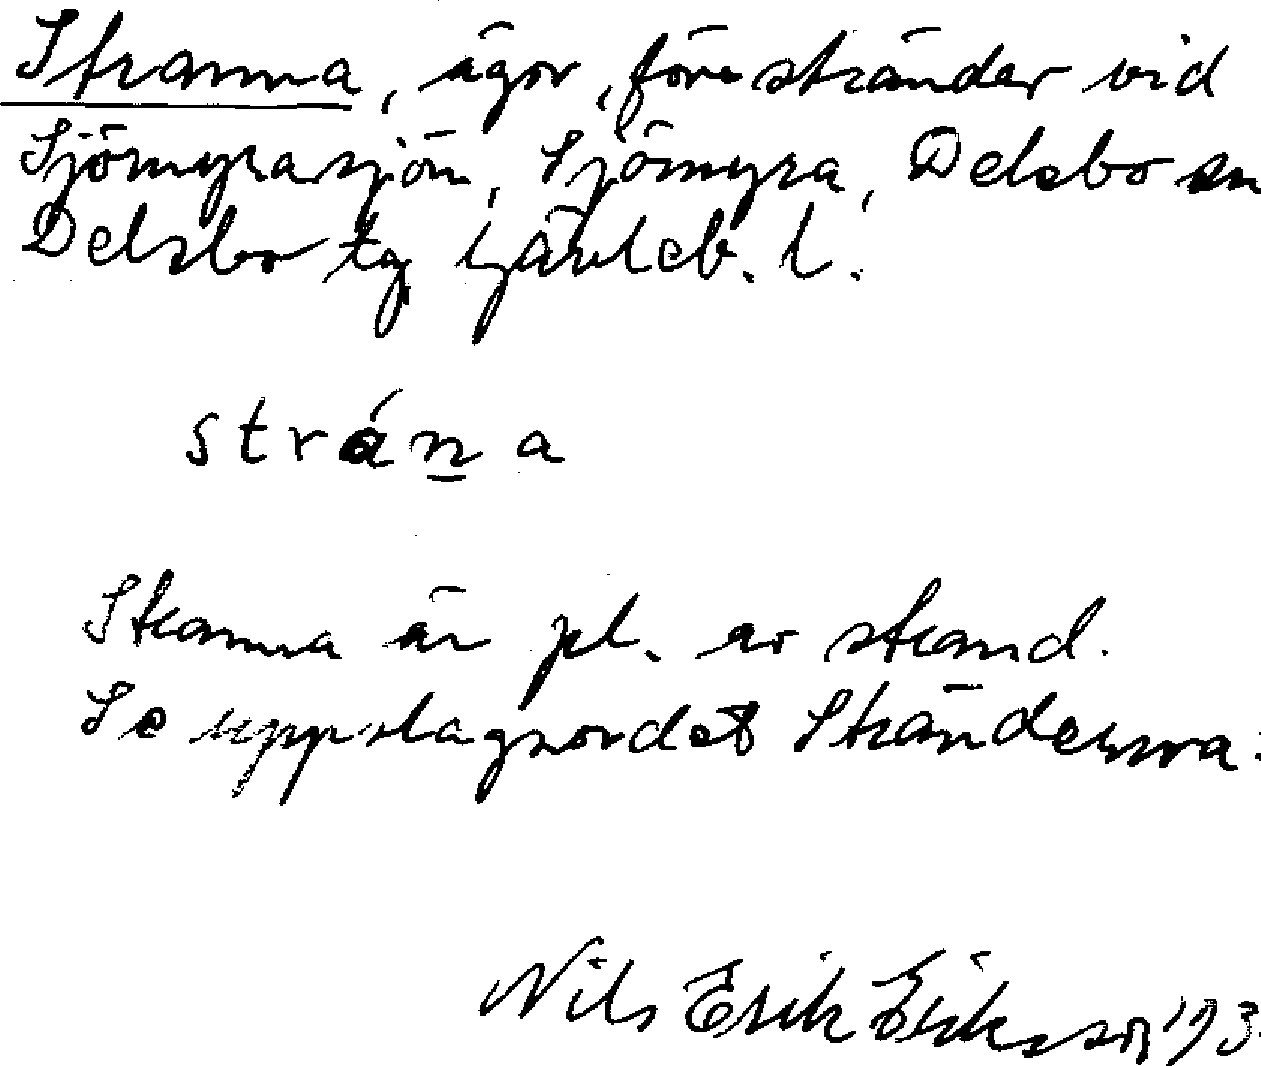 Stranna, ägor, före stränder vid
Sjömyrasjön, Sjömyra, Delsbo sn
Delsbo tg Gävleb. l.
strána
Stranna är pl. av strand.
Se uppslagsordet Stränderna.
Nils Erik Eriksson '93.